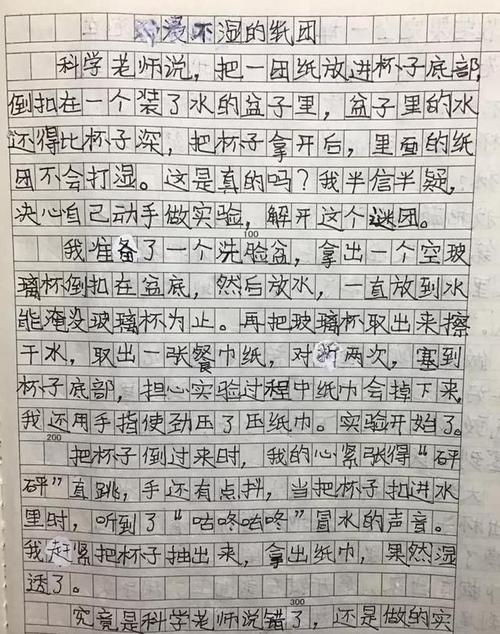 浸不湿的纸团
科学老师说，把一团纸放进杯子底部，
倒扣在一个装了水的盆子里，盆子里的水
还得比杯子深，把杯子拿开后，里面的纸
团不会打湿。这是真的吗？我半信半疑，
决心自己动手做实验，解开这个谜团。
100
我准备了一个洗脸盆，拿出一个空玻
璃杯倒扣在盆底，然后放水，一直放到水
能淹没玻璃杯为止。再把玻璃杯取出来擦
干水，取出一张餐巾纸，对折两次，塞到
杯子底部，担心实验过程中纸巾会掉下来，
我还用手指使劲压了压纸巾。实验开始了。
200
把杯子倒过来时，我的心紧张得“砰
砰”直跳，手还有点抖，当把杯子扣进水
里时，听到了“咕咚咕咚”冒水的声音。
我赶紧把杯子抽出来，拿出纸巾，果然湿
透了。
300
究竟是科学老师说错了，还是做的实